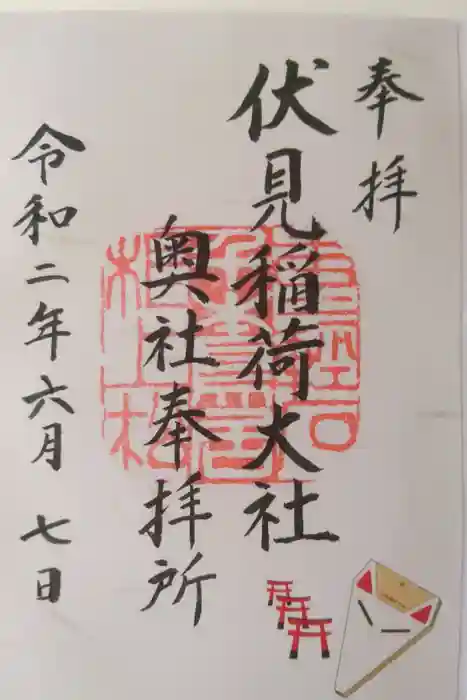 奉拝
伏見稲荷大社
奥社奉拝所
令和二年六月七日